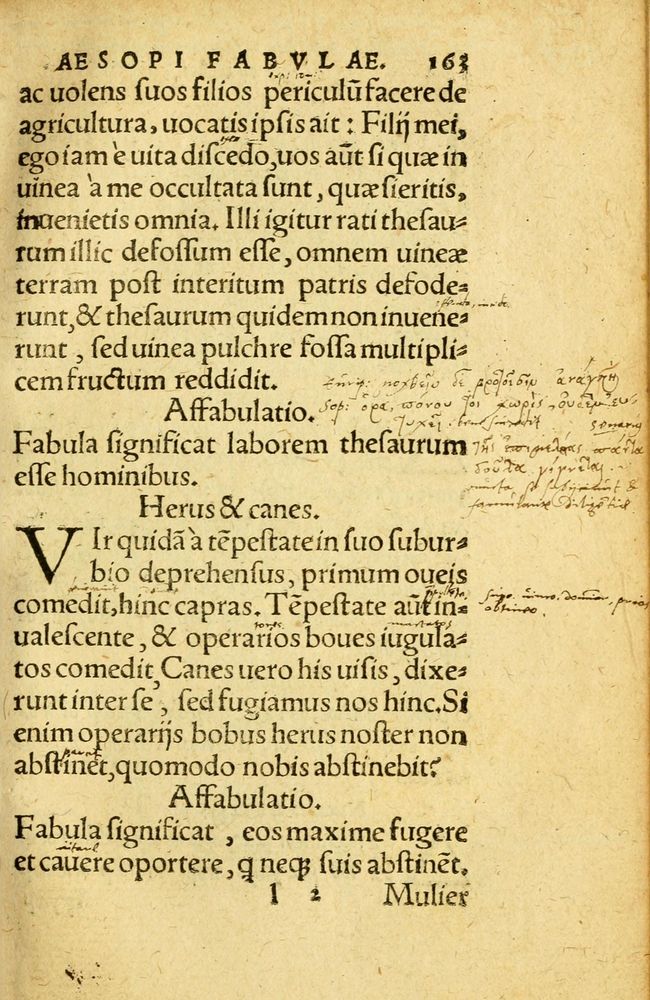 AESOPI FABVLAE. 163
ac uolens suos filios periculũ facere de
agricultura, uocatis ipsis ait : Filij mei,
ego iam è uita discedo, uos aũt si quæ in
uinea à me occultata sunt, quæsieritis,
inuenietis omnia. Illi igitur rati thesau-
rum illic defossum esse, omnem uineæ
terram post interitum patris defode-
runt, & thesaurum quidem non inuene-
runt, sed uinea pulchre fossa multipli-
cem fructum reddidit.
Affabulatio.
Fabula significat laborem thesaurum
esse hominibus.
Herus & canes.
VIr quidã à tẽpestate in suo subur-
bio deprehensus, primum oueis
comedit, hinc capras. Tẽpestate aũt in-
ualescente, & operarios boues iugula-
tos comedit, Canes uero his uisis, dixe-
runt inter se, sed fugiamus nos hinc. Si
enim operarijs bobus herus noster non
abstinet, quomodo nobis abstinebit?
Affabulatio.
Fabula significat, eos maxime fugere
et cauere oportere, q neqꝫ suis abstinẽt.
l 2 Mulier